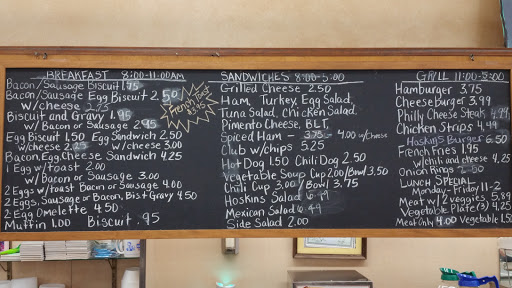 BREAKFAST 8:00-11:00AM
Bacon/Sausage Biscuit 1.75
Bacon/Sausage Egg Biscuit 2.50
w/cheese 2.75
Biscuit and Gravy 1.95
w/ Bacon or Sausage 2.95
Egg Biscuit 1.50 Egg Sandwich 2.50
w/cheese 2.25 w/cheese 3.00
Bacon, Egg, Cheese Sandwich 4.25
1 Egg w/toast 2.00
w/ Bacon or Sausage 3.00
2 Eggs w/toast Bacon or Sausage 4.00
2 Eggs, Sausage or Bacon, Bisct Gravy 4.50
2 Egg Omelette 4.50
Muffin 1.00 Biscuit .95
French Toast
$3.95
SANDWICHES 8:00-5:00
Grilled Cheese 2.50
Ham, Turkey, Egg Salad,
Tuna Salad, Chicken Salad,
Pimento Cheese, BLT,
Spiced Ham - 3.75 - 4.00 w/cheese
Club w/chips 5.25
Hot Dog 1.50 Chili Dog 2.50
Vegetable Soup Cup 2.00/Bowl 3.50
Chili Cup 3.00/Bowl 3.75
Hoskins Salad 6.49
Mexican Salad 6.49
Side Salad 2.00
GRILL 11:00-5:00
Hamburger 3.75
Cheese Burger 3.99
Philly Cheese Steak 4.99
Chicken Strips 4.99
Hoskins Burger 6.50
French Fries 1.95
w/chili and cheese 4.25
Onion Rings 2.50
LUNCH SPECIAL
Monday-Friday 11-2
Meat w/2 veggies 5.89
Vegetable Plate (3) 4.25
Meat Only 4.00 Vegetable 1.50